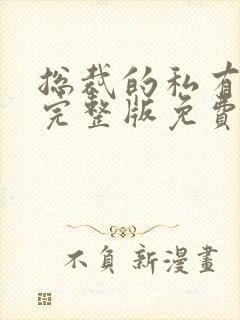 总裁的私有
完整版免費
不負新漫畫